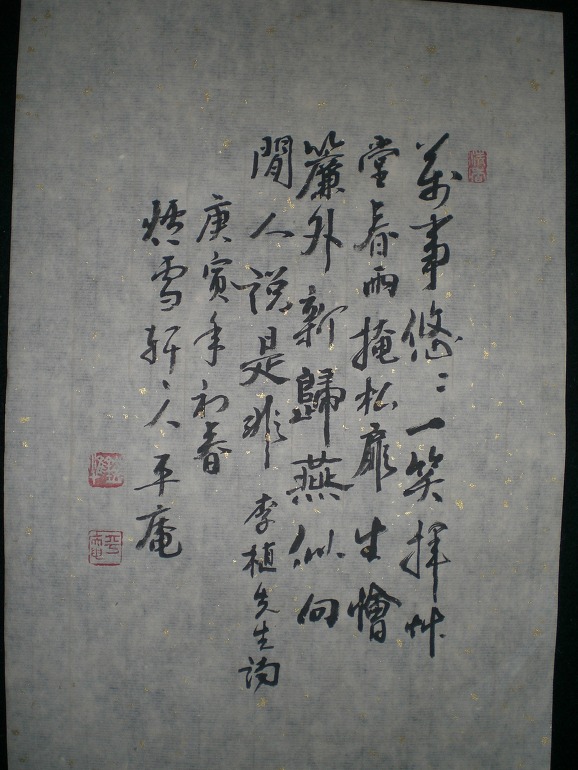 萬事悠〻一笑揮艸
堂春雨掩松扉生憎
簾外新歸燕似向
閒人説是非 李植先生詩
庚寅年初春
雪軒〻人平庵